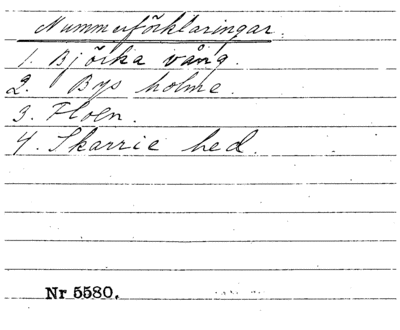 Nummerförklaringar.
1. Björka vång.
2. Bys holme.
3. Floen.
4. Skarrie hed.
Nr 5580.